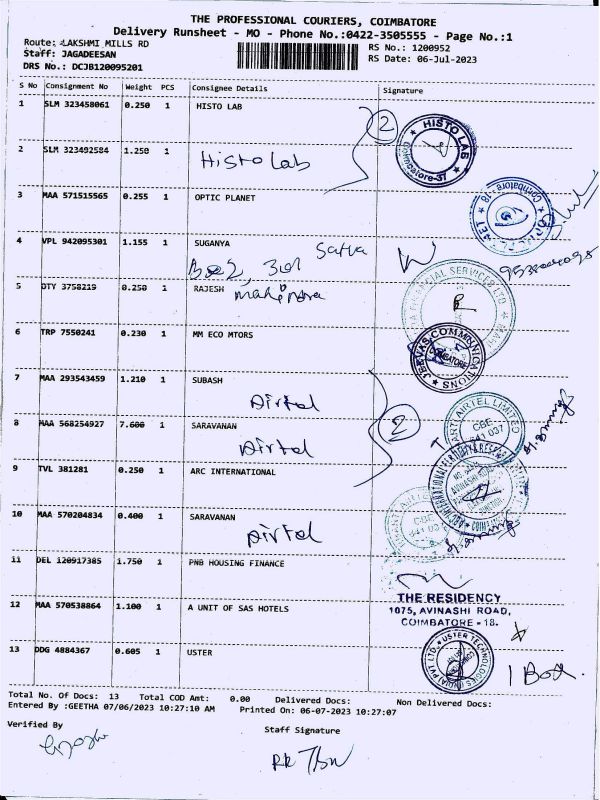 THE PROFESSIONAL COURIERS, COIMBATORE
Delivery Runsheet - MO - Phone No.:0422-3505555 - Page No.:1
Route: LAKSHMI MILLS RD
Staff: JAGADEESAN
DRS No.: DCJB120095201
RS No.: 1200952
RS Date: 06-Jul-2023
S No Consignment No Weight PCS Consignee Details Signature
1 SLM 323458061 0.250 1 HISTO LAB
2
HISTO LAB
Coimbatore-37
2 SLM 323492584 1.250 1
Histo Lab
3 MAA 571515565 0.255 1 OPTIC PLANET
4 VPL 942095301 1.155 1 SUGANYA
5 DTY 3758219 0.250 1 RAJESH
mahindra
6 TRP 7550241 0.230 1 MM ECO MTORS
JEEVAS COMMUNICATIONS
COIMBATORE
7 MAA 293543459 1.210 1 SUBASH
Airtel
8 MAA 568254927 7.600 1 SARAVANAN
Airtel
2
AIRTEL LIMITED
CBE
641 037
9 TVL 381281 0.250 1 ARC INTERNATIONAL
10 MAA 570204834 0.400 1 SARAVANAN
Airtel
11 DEL 120917385 1.750 1 PNB HOUSING FINANCE
12 MAA 570538864 1.100 1 A UNIT OF SAS HOTELS
THE RESIDENCY
1075, AVINASHI ROAD,
COIMBATORE - 18.
13 DDG 4884367 0.605 1 USTER
USTER TECHNOLOGIES (INDIA) PVT LTD
1 Box.
Total No. Of Docs: 13 Total COD Amt: 0.00 Delivered Docs: Non Delivered Docs:
Entered By :GEETHA 07/06/2023 10:27:10 AM Printed On: 06-07-2023 10:27:07
Verified By
Staff Signature